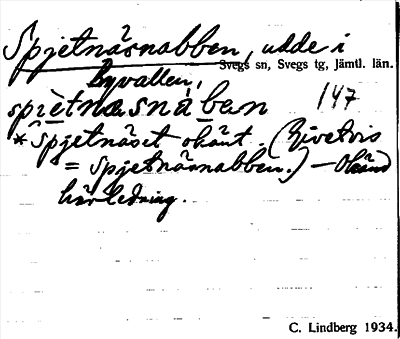 Spjetnäsnabben, udde i
Svegs sn, Svegs tg, Jämtl. län.
Byvallen,
spìetnasnàben 147
* Spjetnäset okänt. (Givetvis
= Spjetnäsnabben.) — Okänd
härledning.
C. Lindberg 1934.